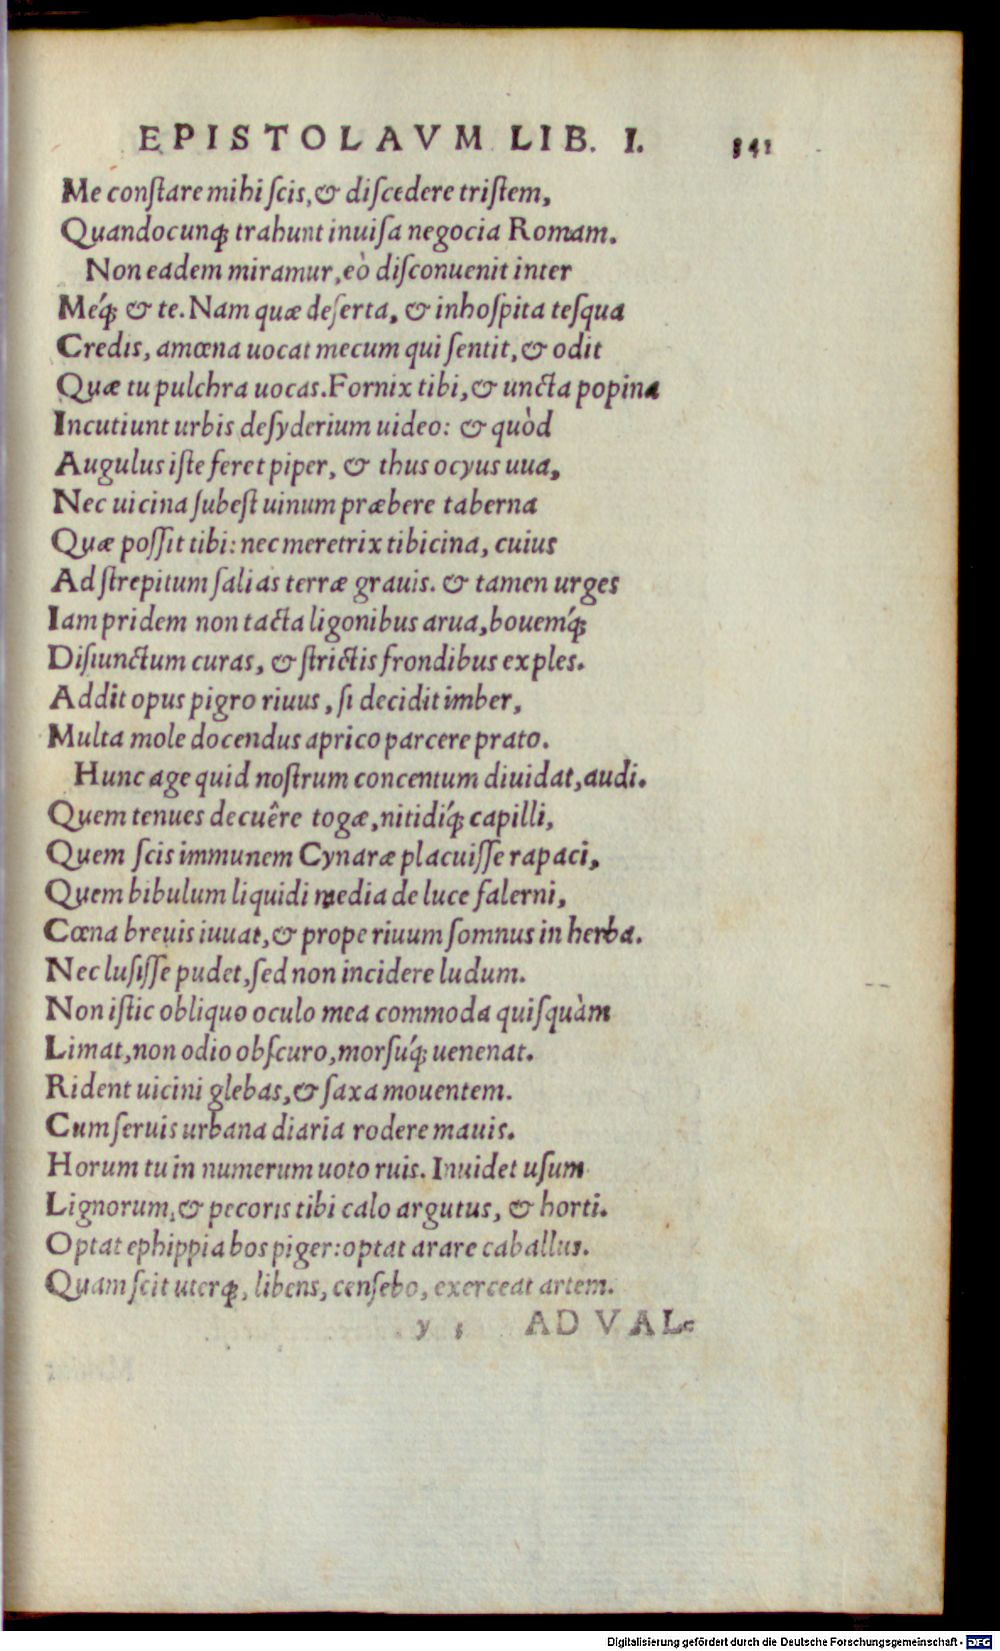 EPISTOLAVM LIB. I. 341
Me conſtare mihi ſcis, & diſcedere triſtem,
Quandocunq; trahunt inuiſa negocia Romam.
Non eadem miramur, eò diſconuenit inter
Méq; & te. Nam quæ deſerta, & inhoſpita teſqua
Credis, amœna uocat mecum qui ſentit, & odit
Quæ tu pulchra uocas. Fornix tibi, & uncta popina
Incutiunt urbis deſyderium uideo: & quòd
Augulus iſte feret piper, & thus ocyus uua,
Nec uicina ſubeſt uinum præbere taberna
Quæ poſſit tibi: nec meretrix tibicina, cuius
Ad ſtrepitum ſalias terræ grauis. & tamen urges
Iampridem non tacta ligonibus arua, bouemq́;
Diſiunctum curas, & ſtrictis frondibus exples.
Addit opus pigro riuus, ſi decidit imber,
Multa mole docendus aprico parcere prato.
Hunc age quid noſtrum concentum diuidat, audi.
Quem tenues decuêre togæ, nitidiq́; capilli,
Quem ſcis immunem Cynaræ placuiſſe rapaci,
Quem bibulum liquidi media de luce falerni,
Cœna breuis iuuat, & prope riuum ſomnus in herba.
Nec luſiſſe pudet, ſed non incidere ludum.
Non iſtic obliquo oculo mea commoda quiſquàm
Limat, non odio obſcuro, morſuq́; uenenat.
Rident uicini glebas, & ſaxa mouentem.
Cum ſeruis urbana diaria rodere mauis.
Horum tu in numerum uoto ruis. Inuidet uſum
Lignorum, & pecoris tibi calo argutus, & horti.
Optat ephippia bos piger: optat arare caballus.
Quam ſcit uterq;, libens, cenſebo, exerceat artem.
y 3 AD VAL-
Digitalisierung gefördert durch die Deutsche Forschungsgemeinschaft - DFG